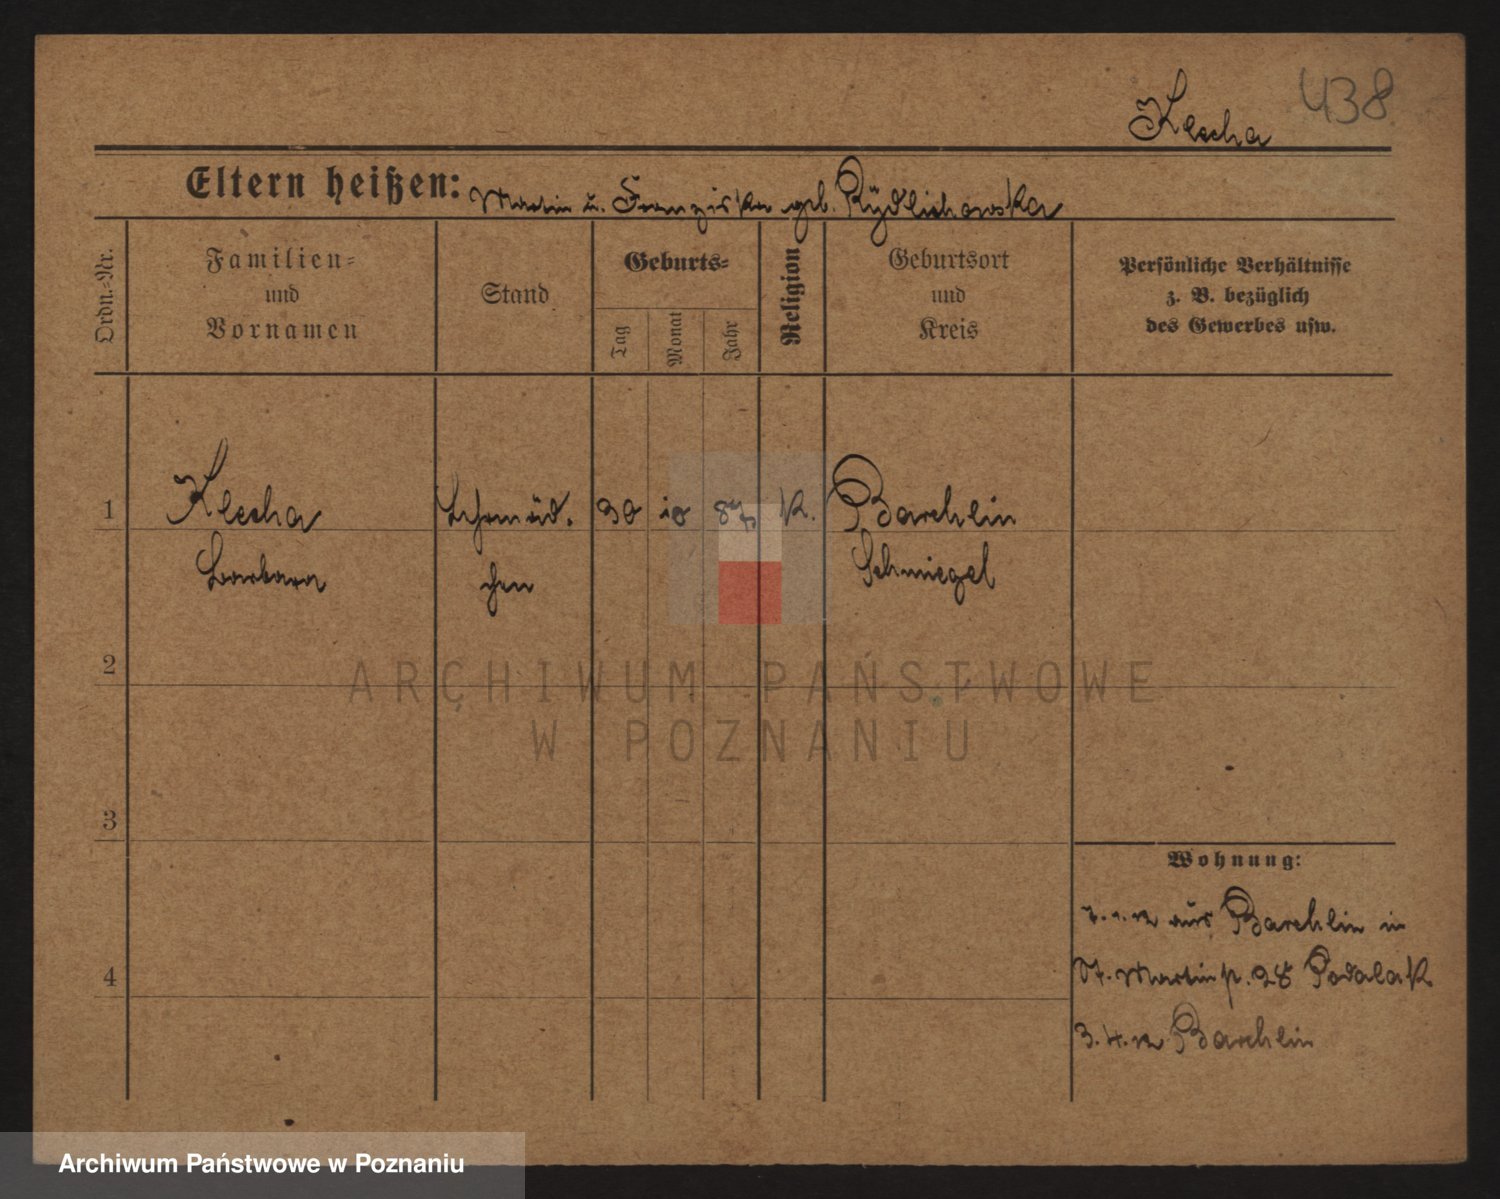 438
Klecha
Eltern heißen: Martin u. Franziska geb. Rydlichowska
Ordn.-Nr.
Familien-
und
Vornamen
Stand
Geburts-
Tag
Monat
Jahr
Religion
Geburtsort
und
Kreis
Persönliche Verhältnisse
z. B. bezüglich
des Gewerbes usw.
1 Klecha 30 10 87 K. Barchlin
Barbara chen Schmiegel
2
3
4
Wohnung:
7.1.12 aus Barchlin in
St. Martinstr. 28 Podalak
3.4.12 Barchlin
ARCHIWUM PAŃSTWOWE
W POZNANIU
Archiwum Państwowe w Poznaniu